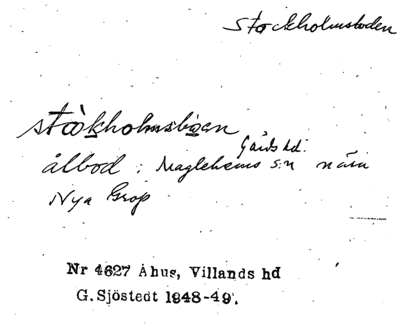 Stockholmsboden
stòkholmsbọen
ålbod i Maglehems s:n Gärds hd. nära
Nya Grop
Nr 4627 Åhus, Villands hd
G. Sjöstedt 1948-49.